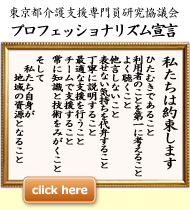 東京都介護支援専門員研究協議会
プロフェッショナリズム宣言
私たちは約束します
ひたむきであること
利用者のことを第一に考えること
よく聴くこと
他言しないこと
表せない気持ちを代弁すること
丁寧に説明すること
最適な支援を行うこと
チームで支援すること
常に知識と技術をみがくこと
そして
私たち自身が
地域の資源となること
click here